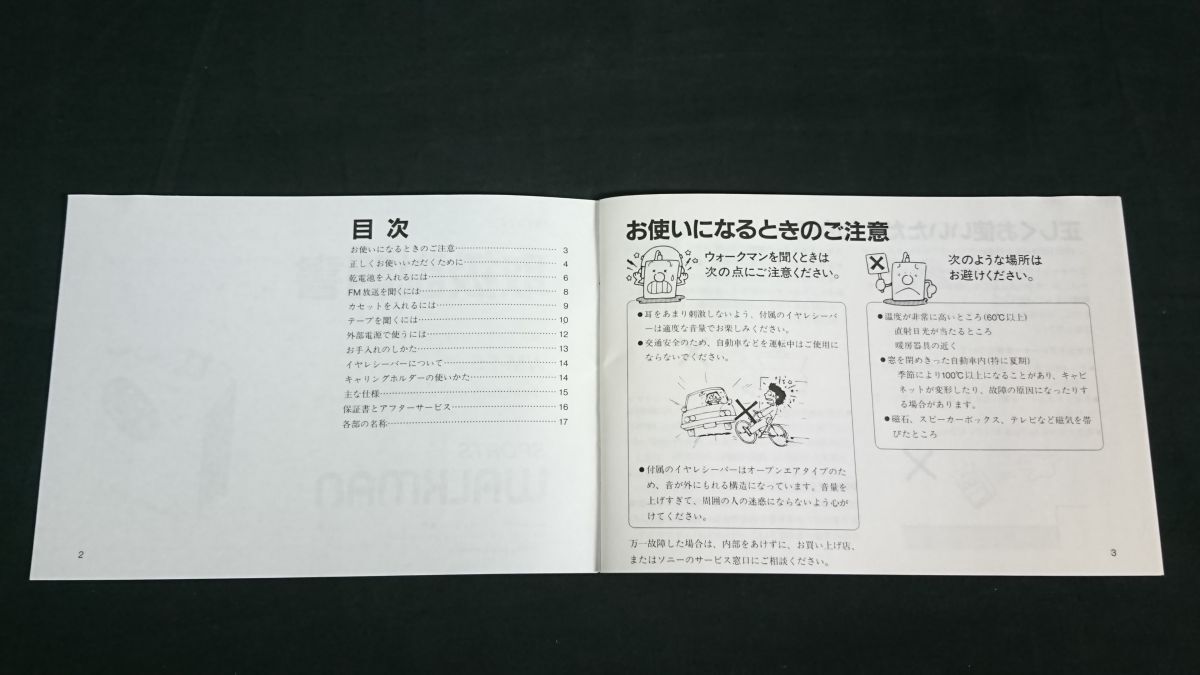 目 次
お使いになるときのご注意……………………………… 3
正しくお使いいただくために…………………………… 4
乾電池を入れるには……………………………………… 6
FM放送を聞くには……………………………………… 8
カセットを入れるには…………………………………… 9
テープを聞くには………………………………………… 10
外部電源で使うには……………………………………… 12
お手入れのしかた………………………………………… 13
イヤレシーバーについて………………………………… 14
キャリングホルダーの使いかた………………………… 14
主な仕様…………………………………………………… 15
保証書とアフターサービス……………………………… 16
各部の名称………………………………………………… 17
2
お使いになるときのご注意
ウォークマンを聞くときは
次の点にご注意ください。
●耳をあまり刺激しないよう、付属のイヤレシーバ
ーは適度な音量でお楽しみください。
●交通安全のため、自動車などを運転中はご使用に
ならないでください。
●付属のイヤレシーバーはオープンエアタイプのた
め、音が外にもれる構造になっています。音量を
上げすぎて、周囲の人の迷惑にならないよう心が
けてください。
万一故障した場合は、内部をあけずに、お買い上げ店、
またはソニーのサービス窓口にご相談ください。
次のような場所は
お避けください。
●温度が非常に高いところ(60℃以上)
直射日光が当たるところ
暖房器具の近く
●窓を閉めきった自動車内(特に夏期)
季節により100℃以上になることがあり、キャビ
ネットが変形したり、故障の原因になったりす
る場合があります。
●磁石、スピーカーボックス、テレビなど磁気を帯
びたところ
3